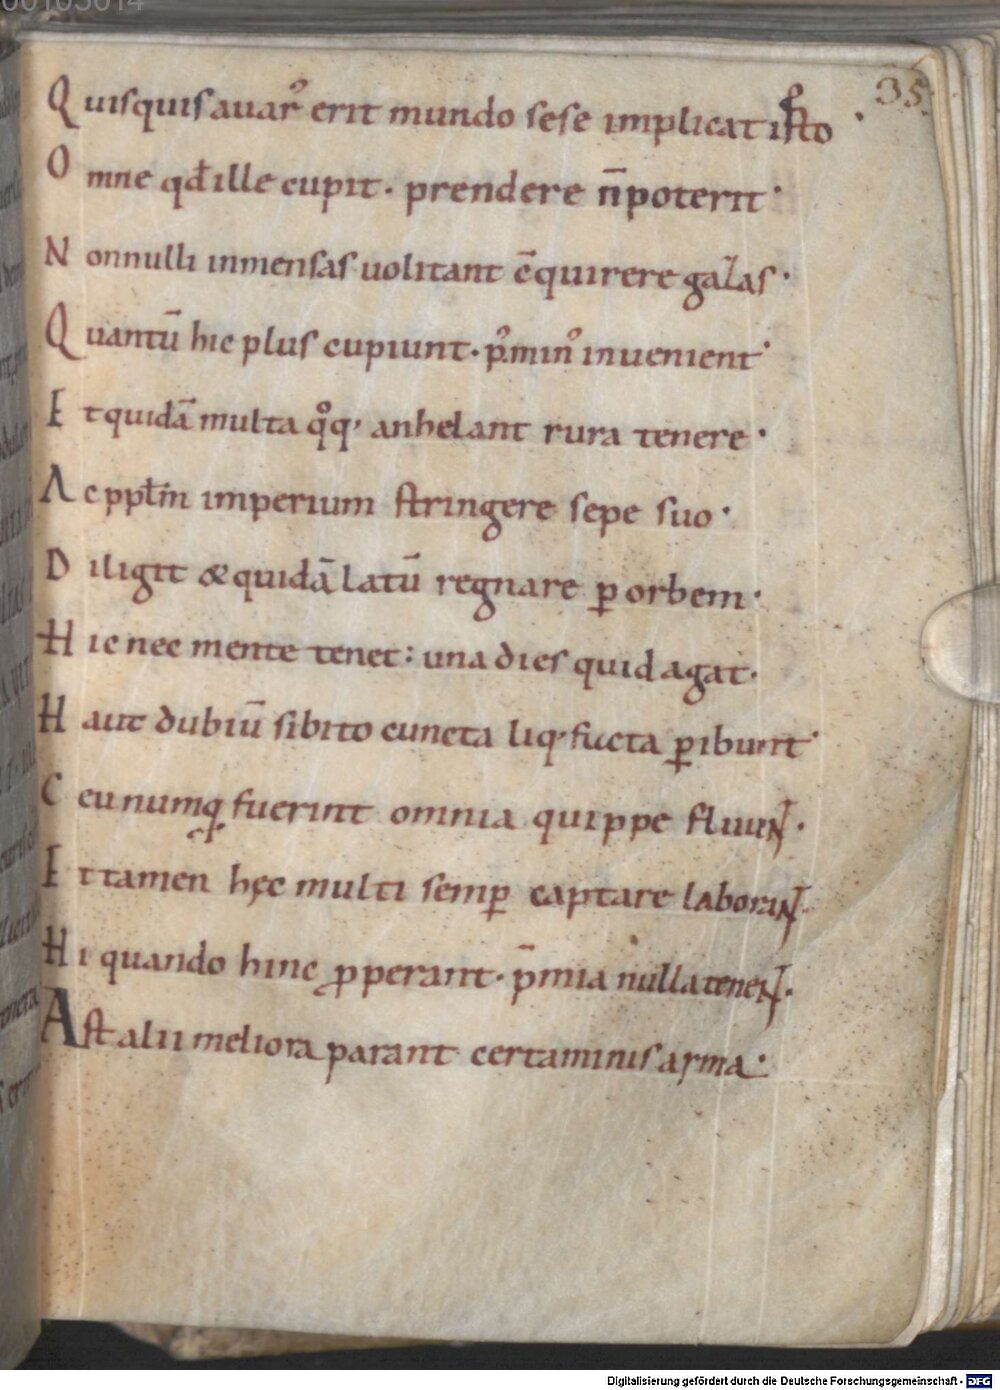 00103014
35.
Quisquis auar᾽ erit mundo sese implicat isto
Omne qđ ille cupit · prendere n̄ poterit·
Nonnulli inmensas uolitant c̄quirere gazas·
Quantū hic plus cupiunt · pꝰ minꝰ inuenient·
Et quidā multa qꝰq; anhelant rura tenere·
Ac ppłm imperium stringere sepe suo·
Diligit & quidā latū regnare ꝑ orbem·
Hic nec mente tenet: una dies quid agat·
Haut dubiū sibito cuncta liq; fucta ꝑibunt·
Ceu numq̄ fuerint omnia quippe fluunt·
Et tamen hęc multi semꝑ captare laborant·
Hi quando hinc ꝓperant · p̄mia nulla tenent·
Ast alii meliora parant certaminis arma·
Digitalisierung gefördert durch die Deutsche Forschungsgemeinschaft - DFG